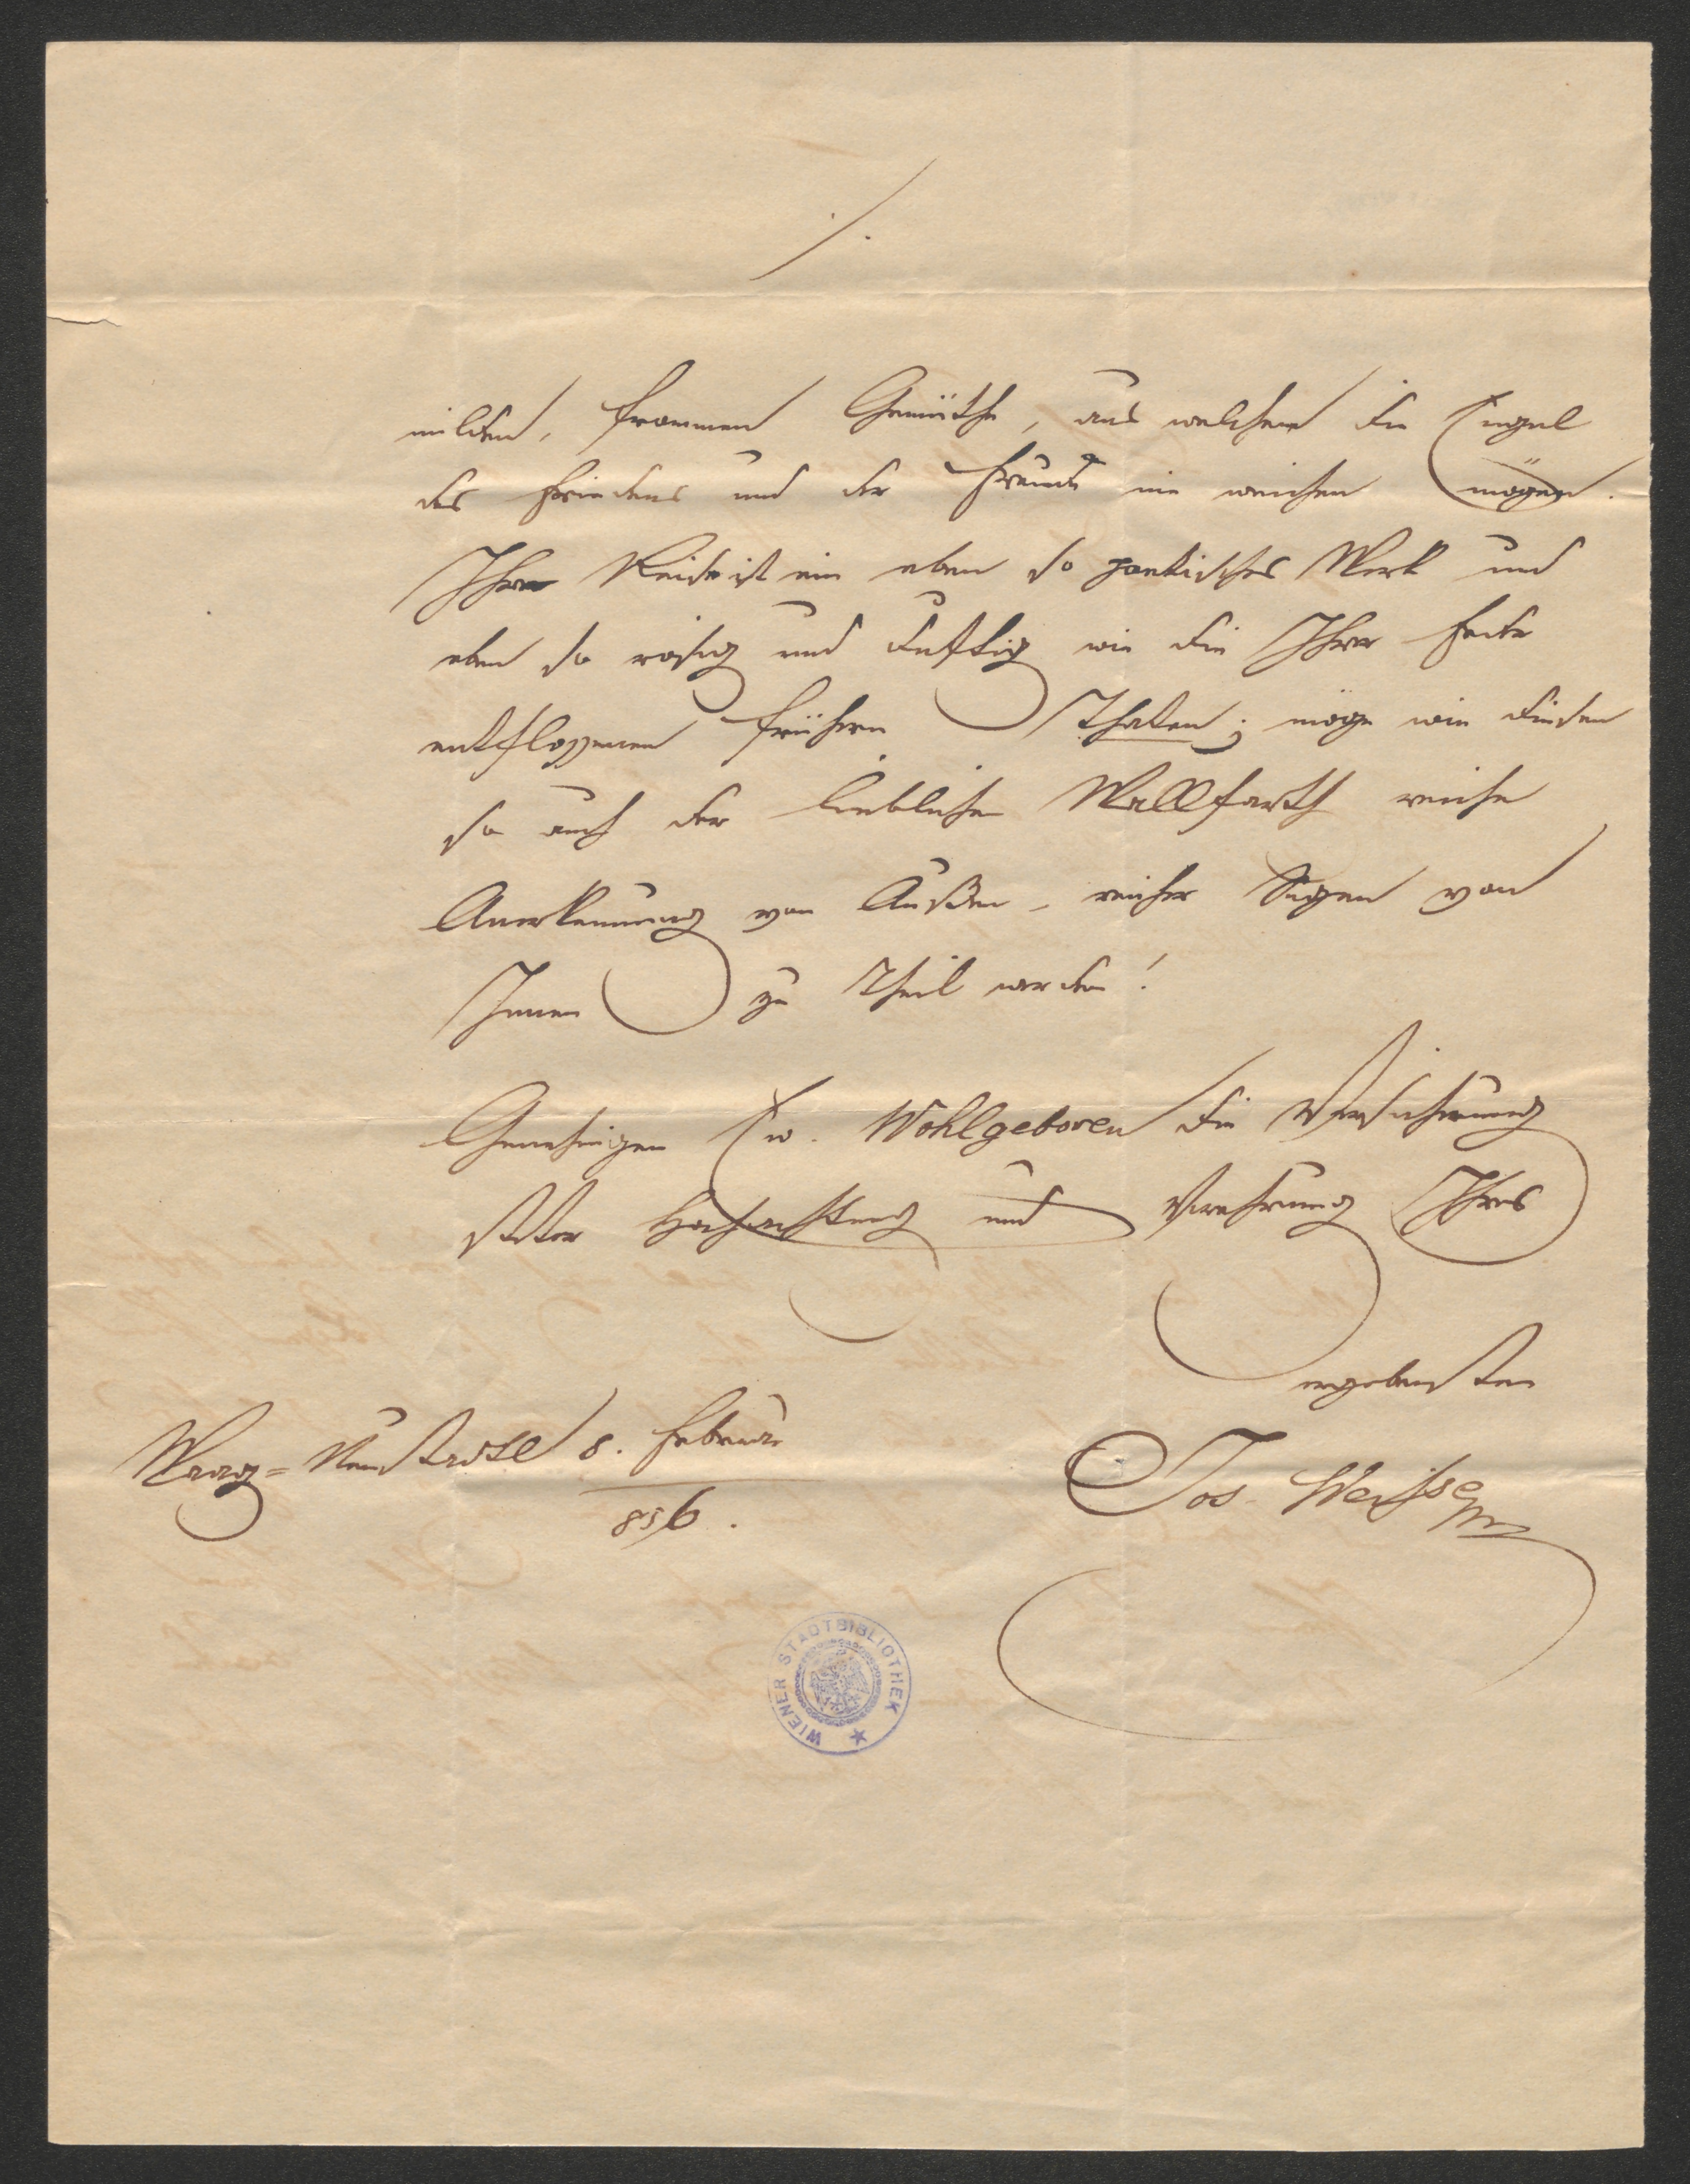 ./.
milden, frommen Gemüthe, aus welchem die Engel
des Friedens und der Freude nie weichen mögen.
Ihre Reise ist ein eben so poetisches Werk und
eben so rosig und duftig wie die Ihrer Feder
entflossenen frühern Thaten; möge wie diesen
so auch der lieblichen Wallfarth reiche
Anerkennung von Außen, reicher Segen von
Innen zu Theil werden!
Genehmigen Ew. Wohlgeboren die Versicherung
steter Hochachtung und Verehrung Ihres
ergebensten
Waag-Neustadtl 8. Februar
856.
Jos. Weisse
WIENER STADTBIBLIOTHEK